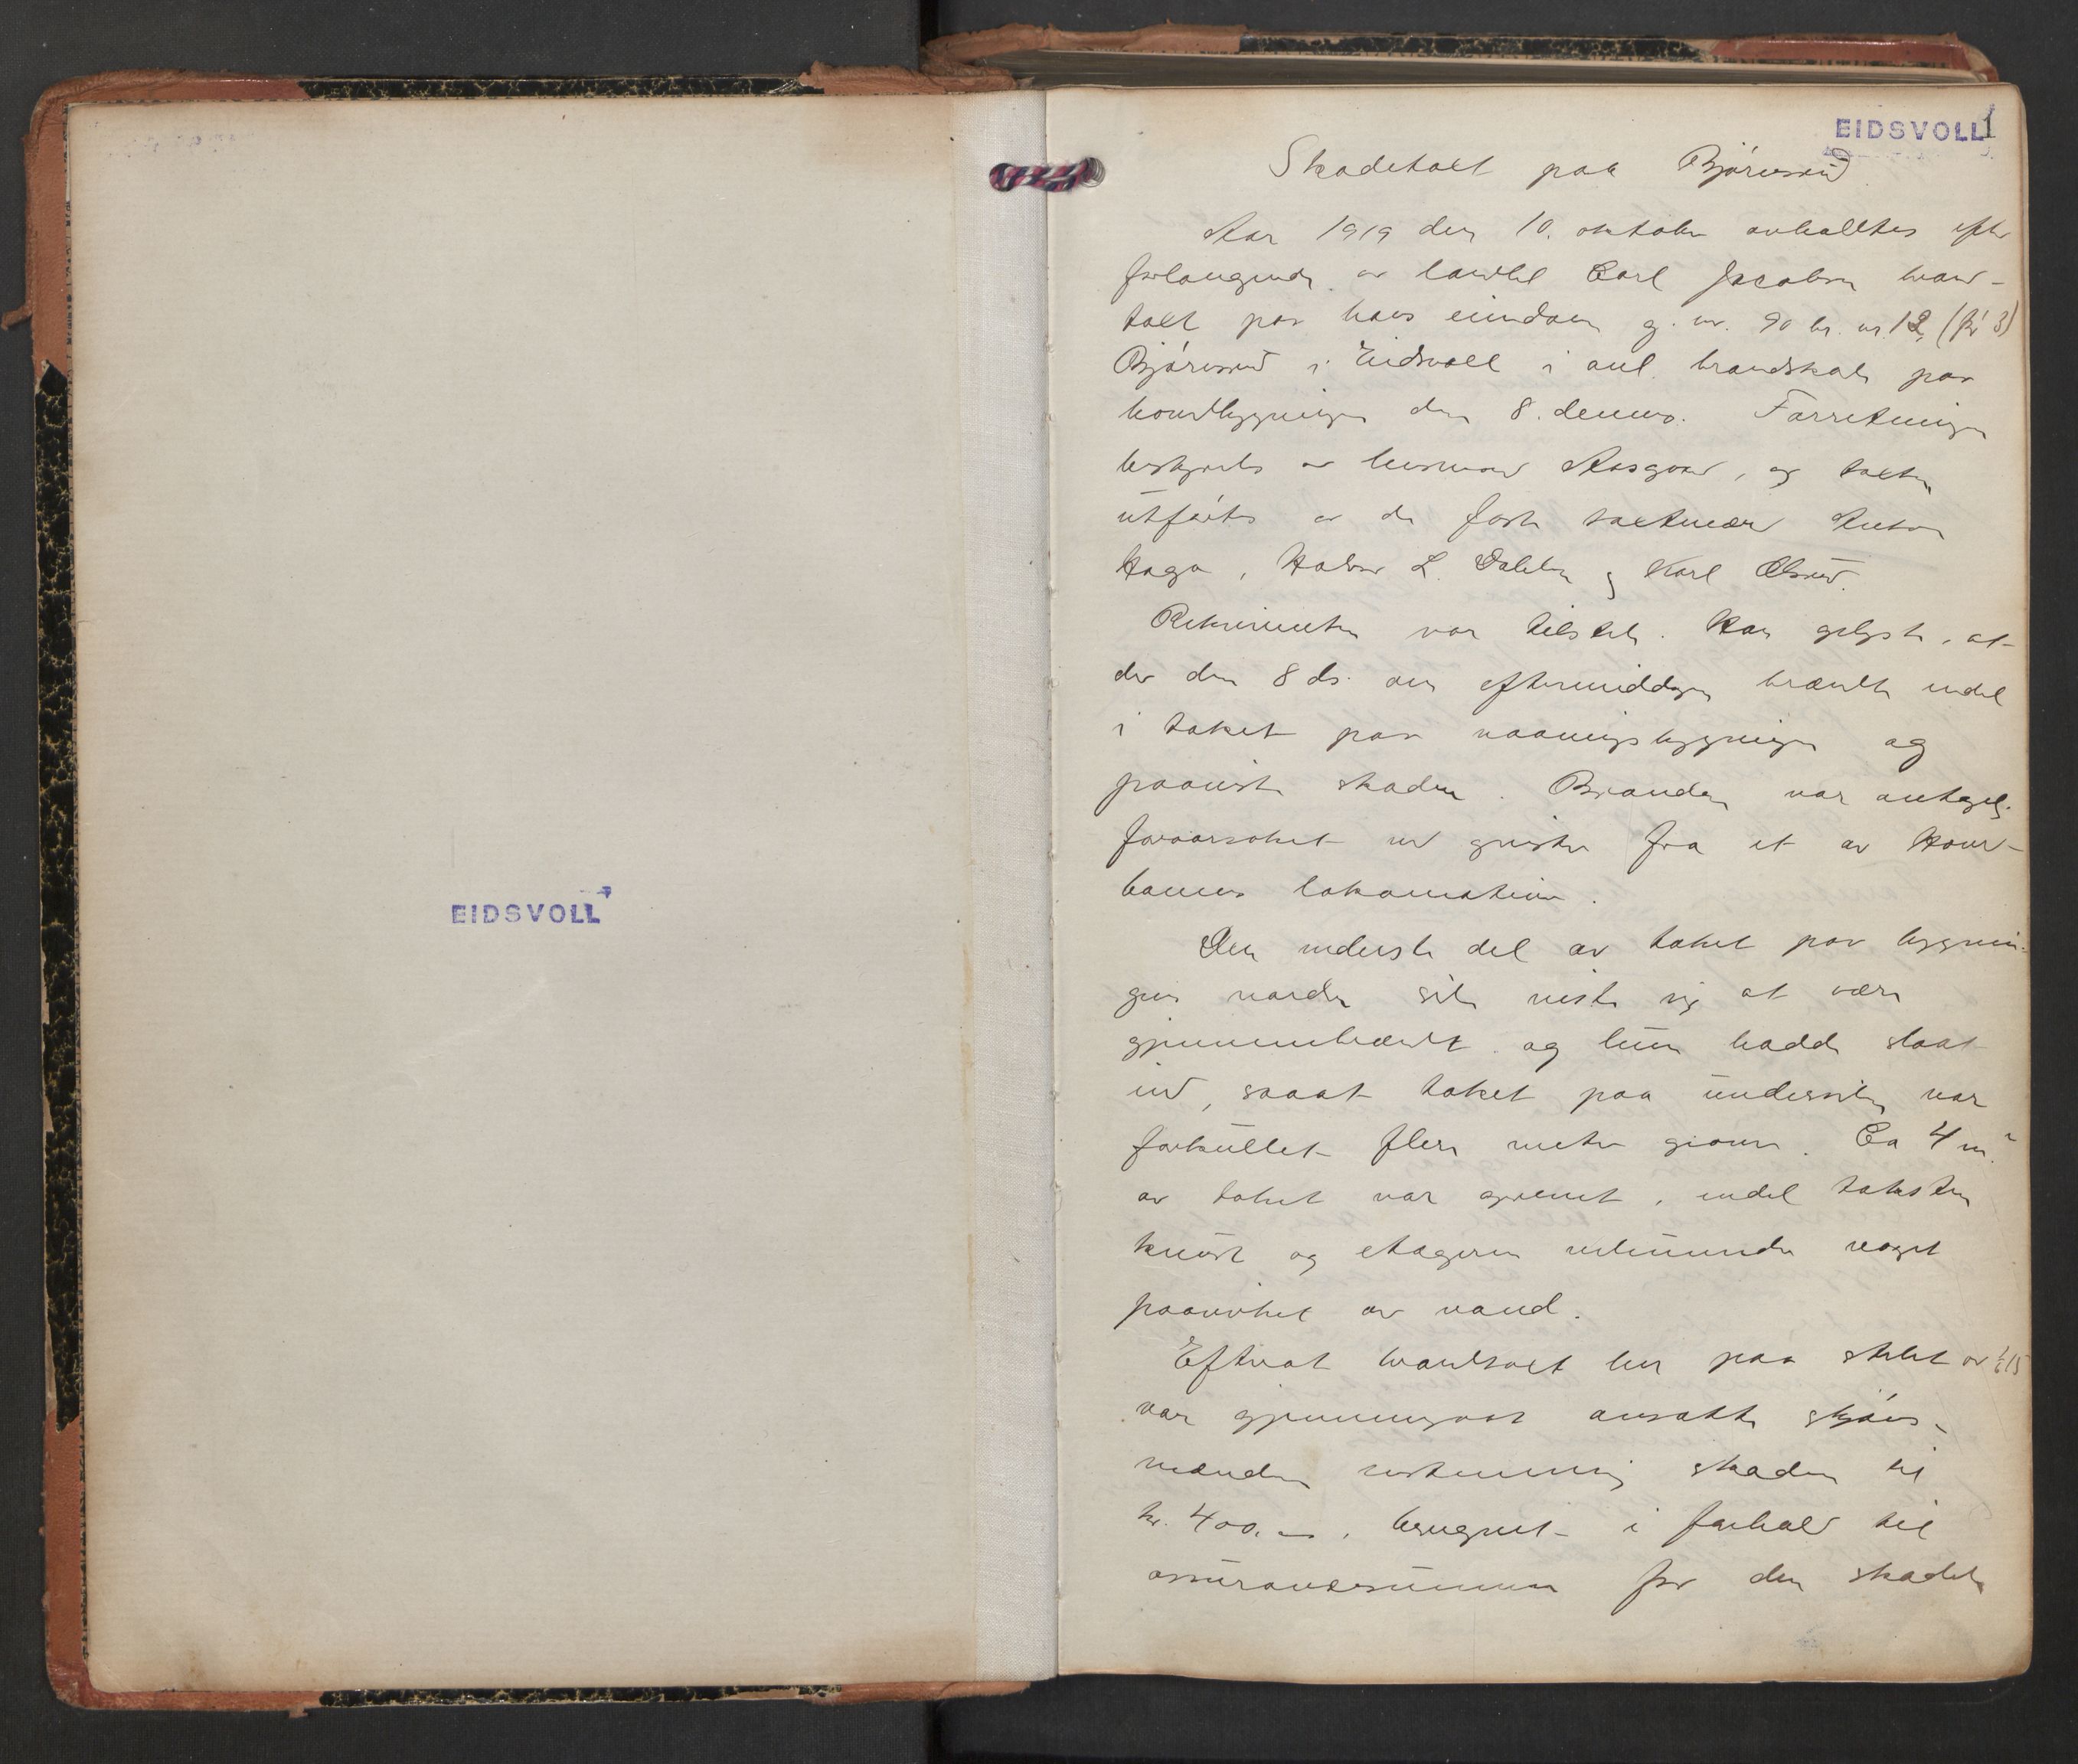 EIDSVOLL
EIDSVOLL 1
Skadetakt paa Bjørnsrud
Aar 1919 den 10. oktober avholdtes efter
forlangende av landh. Carl Jacobsen brand-
takt paa hans eiendom g. nr. 90 br. nr. 12 (før 3)
Bjørnsrud i Eidsvoll i anl. brandskade paa
hovedbygningen den 8. dennes. Forretningen
bestyrtes av lensmand Aasgaard, og takten
utførtes av de faste taktmænd Anton
Haga, Halvor L. Dahlen og Karl Olsrud.
Rekvirenten var tilstede. Han oplyste, at
der den 8 ds. om eftermiddagen brændte endel
i taket paa vaaningsbygningen og
paaviste skaden. Branden var antagelig
foraarsaket ved gnister fra et av Hoved-
banens lokomotiver.
Den nederste del av taket paa bygnin-
gens nordre side viste sig at være
gjennembrændt og luen hadde slaat
ind, saaat taket paa undersiden var
forkullet flere meter . Ca 4 m²
av taket var , endel taksten
knust og etagerne nedenunder noget
paavirket av vand.
Efterat brandtakt her paa stedet av 1/6 15
var gjennemgaat ansatte skjøns-
mændene enstemmig skaden til
kr. 400.-, beregnet i forhold til
assurancesummen for den skadede